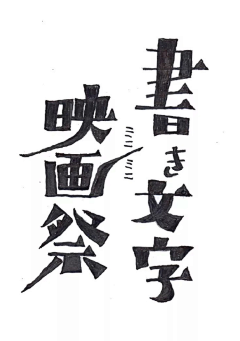 書き文字
ミニミニ
映画祭